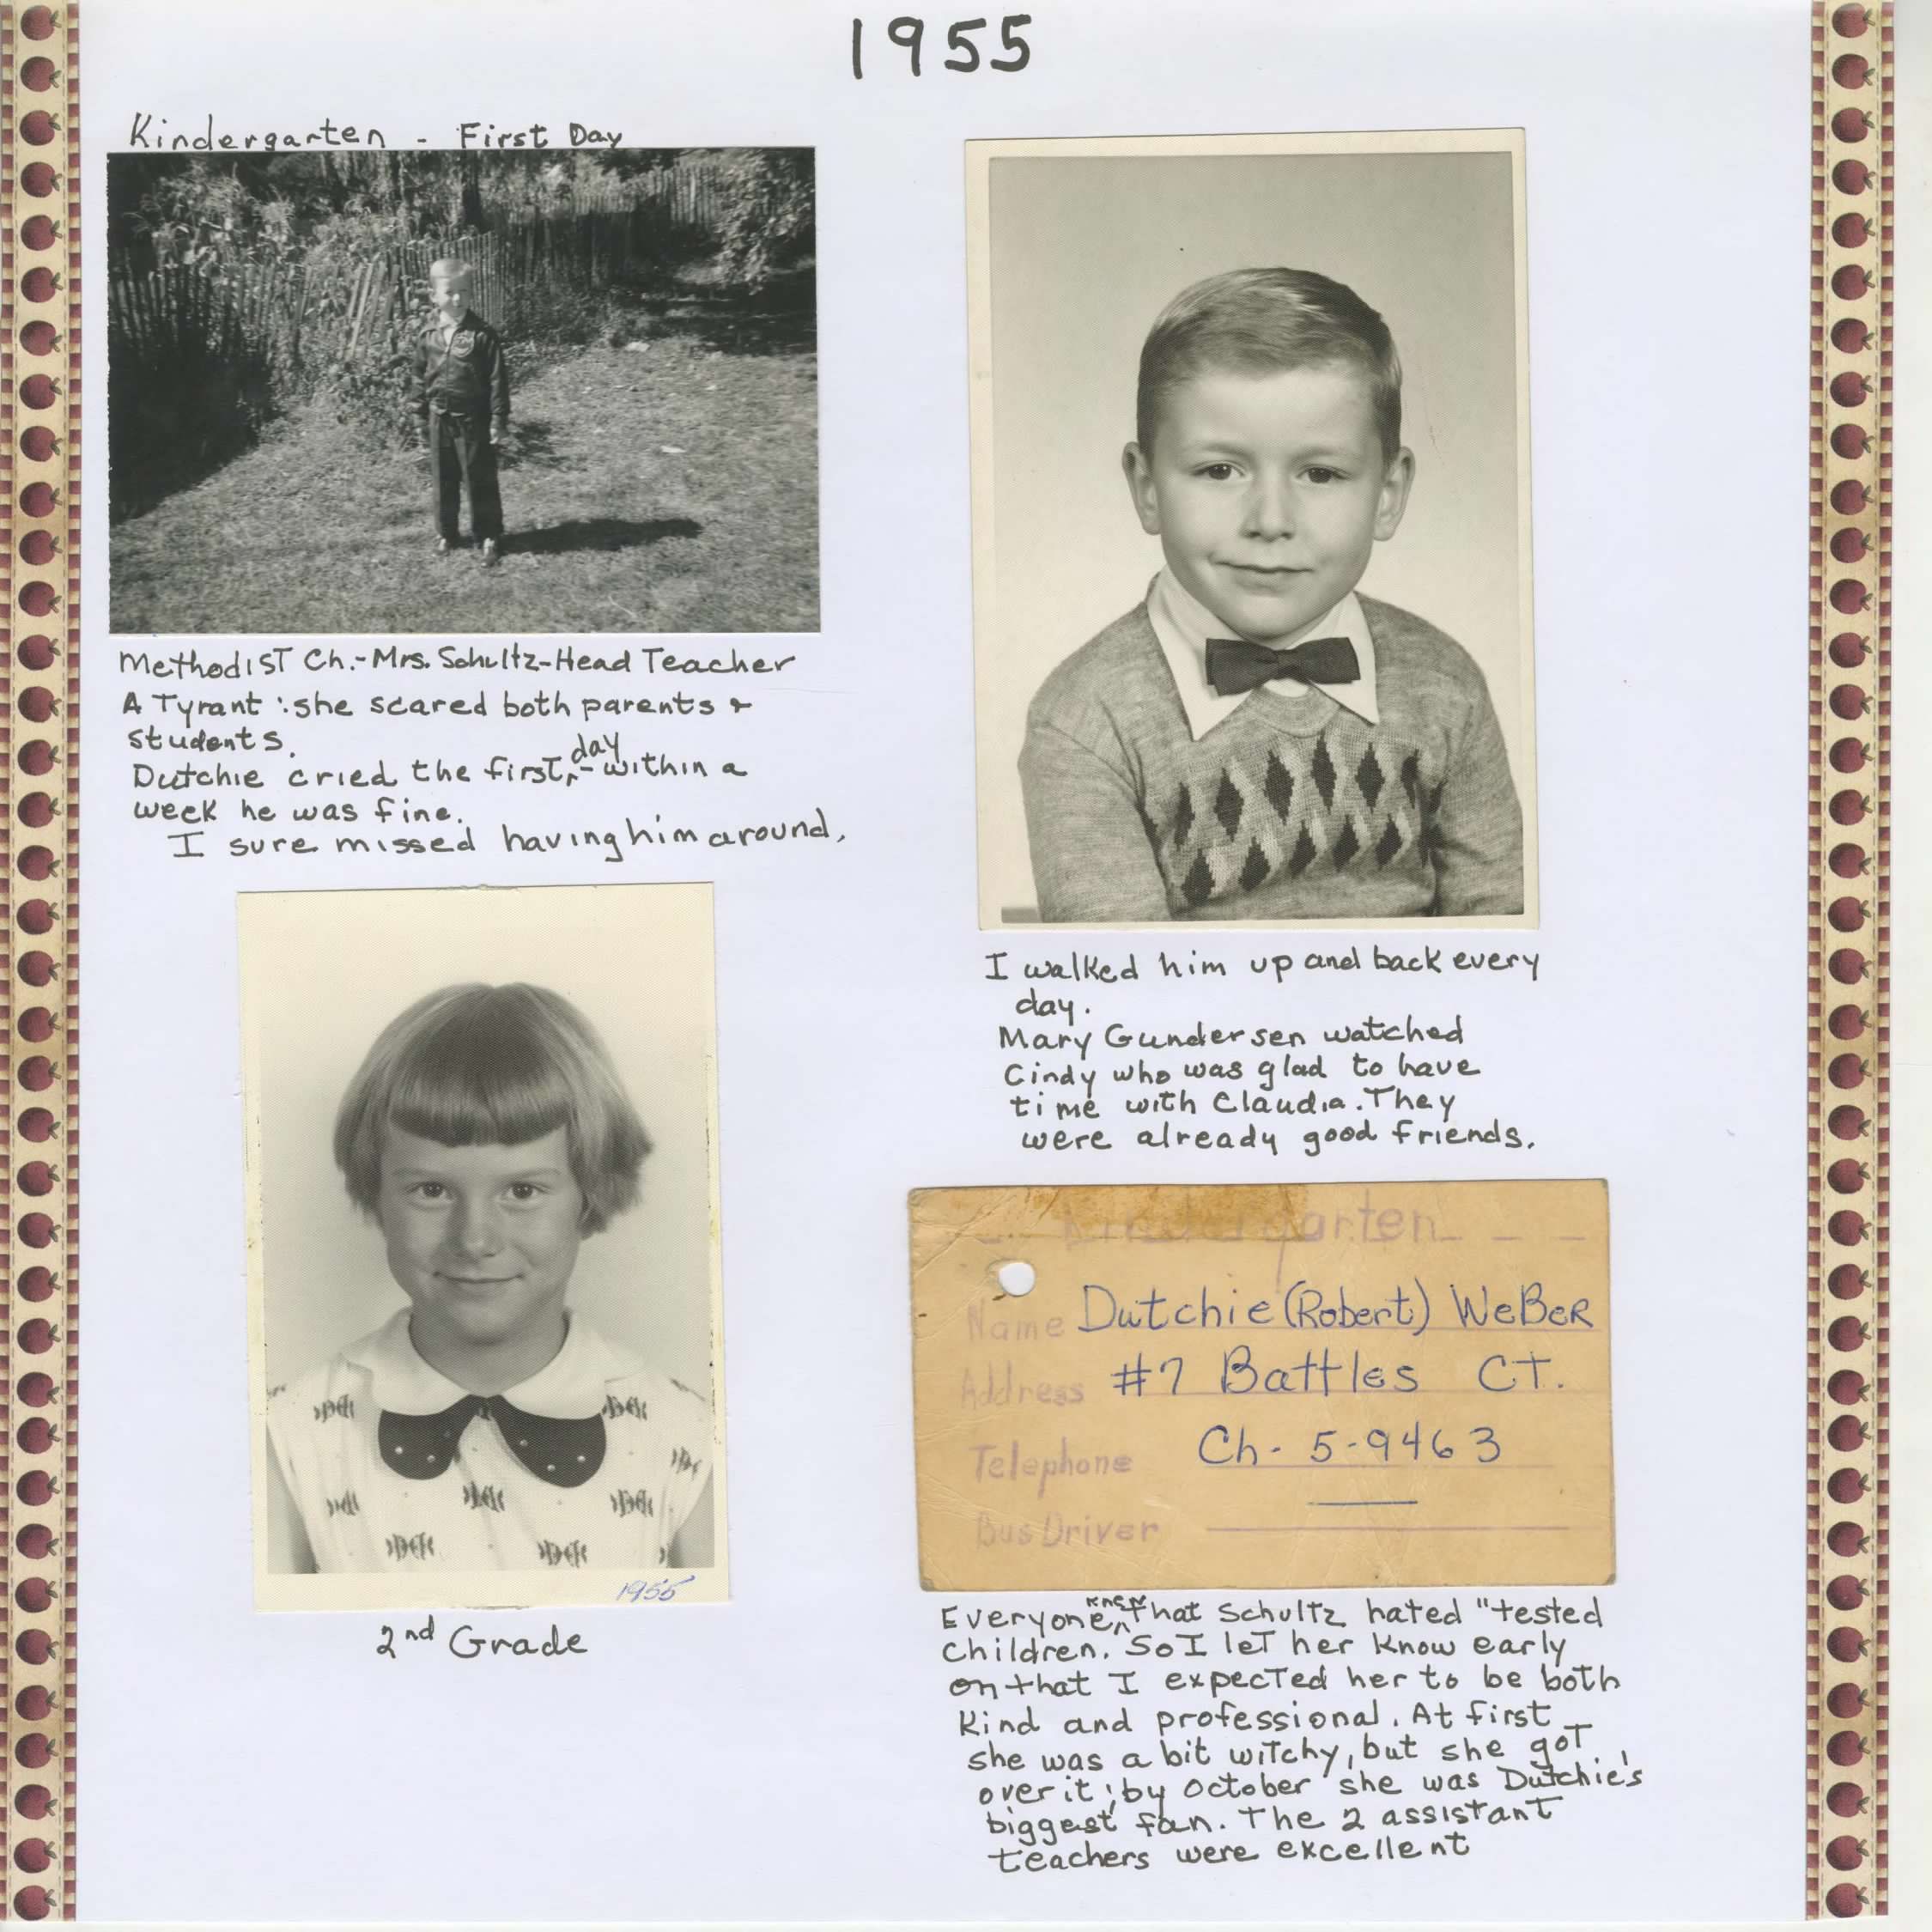 1955
Kindergarten - First Day
Methodist Ch.-Mrs. Schultz-Head Teacher
A Tyrant; she scared both parents &
students.
Dutchie cried the first day - within a
week he was fine.
I sure missed having him around.
1955
2nd Grade
I walked him up and back every
day.
Mary Gundersen watched
Cindy who was glad to have
time with Claudia. They
were already good friends.
Kindergarten
Name Dutchie (Robert) WeBeR
Address #7 Battles CT.
Telephone Ch- 5-9463
Bus Driver
Everyone knew that Schultz hated "tested
children. So I let her know early
on that I expected her to be both
kind and professional. At first
she was a bit witchy, but she got
over it; by October she was Dutchie's
biggest fan. The 2 assistant
teachers were excellent